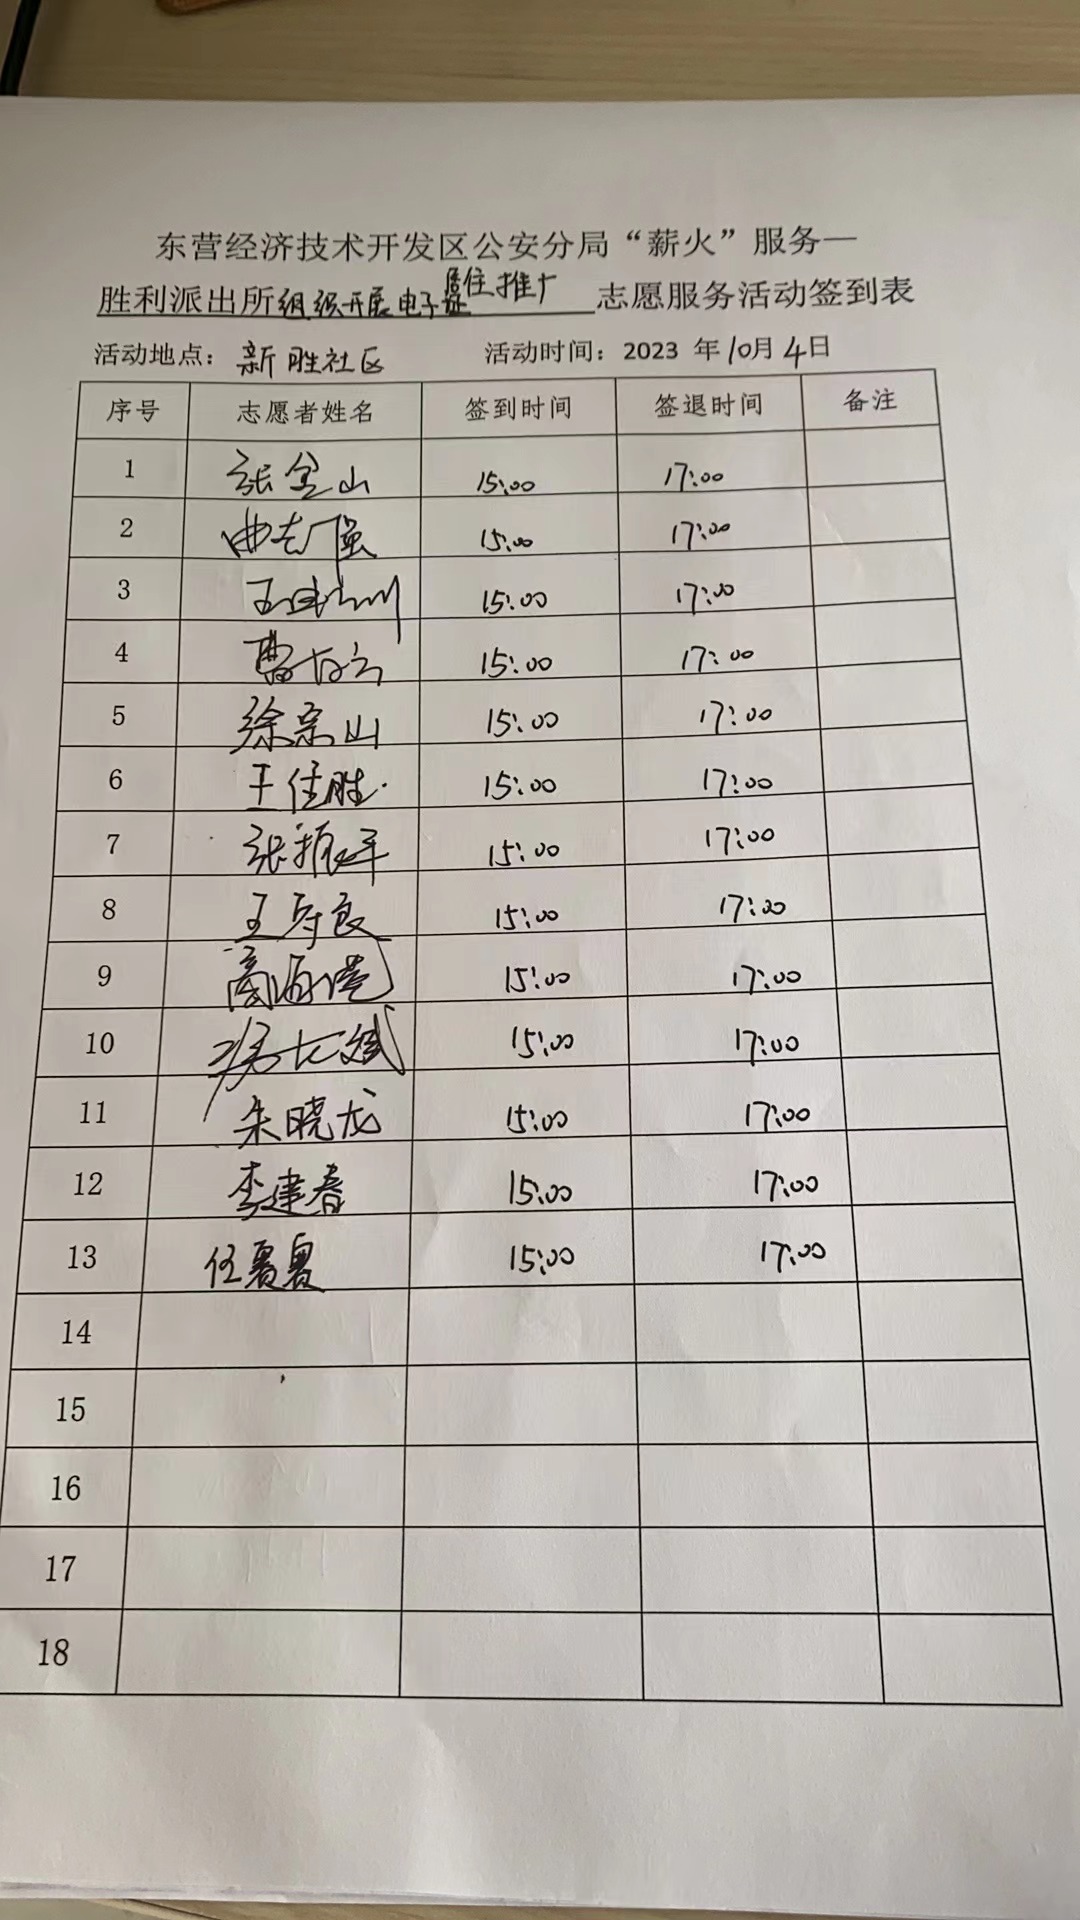 东营经济技术开发区公安分局“薪火”服务—
胜利派出所组织开展电子居住证推广志愿服务活动签到表
活动地点：新胜社区 活动时间：2023 年10月4日
序号 志愿者姓名 签到时间 签退时间 备注
1 张金山 15:00 17:00
2 曲志强 15:00 17:00
3 15:00 17:00
4 15:00 17:00
5 徐宗山 15:00 17:00
6 王佳胜 15:00 17:00
7 张振军 15:00 17:00
8 王寿良 15:00 17:00
9 15:00 17:00
10 15:00 17:00
11 朱晓龙 15:00 17:00
12 李建春 15:00 17:00
13 15:00 17:00
14
15
16
17
18